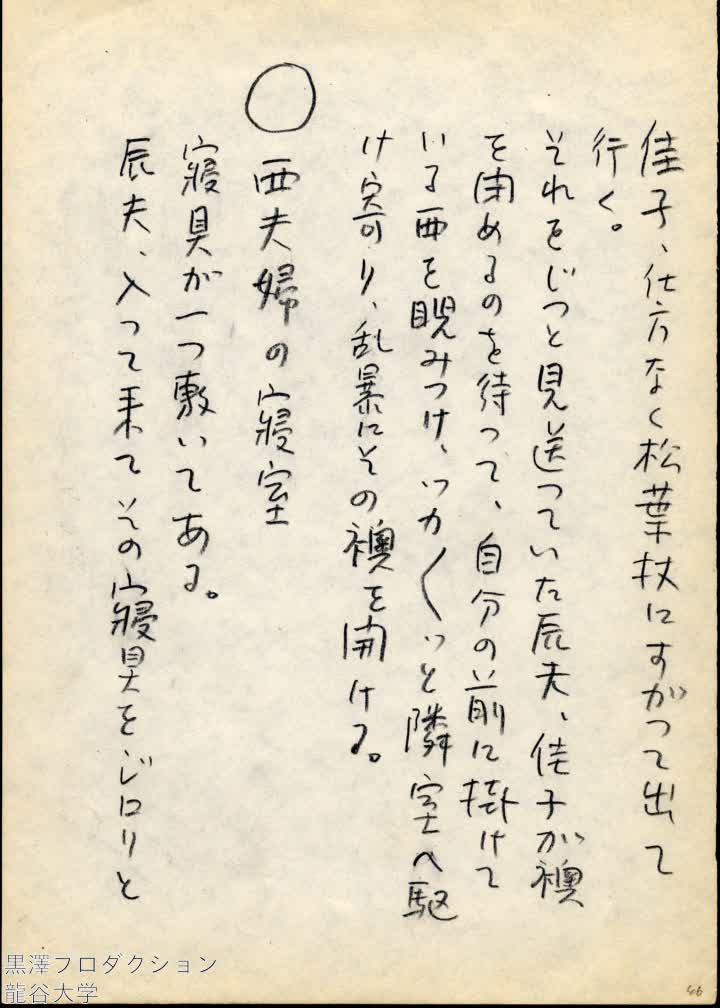 佳子、仕方なく松葉杖にすがつて出て
行く。
それをじつと見送つていた辰夫、佳子が襖
を閉めるのを待つて、自分の前に掛けて
いる西を睨みつけ、ツカ〱ッと隣室へ駆
け寄り、乱暴にその襖を開ける。
○ 西夫婦の寝室
寝具が一つ敷いてある。
辰夫、入つて来てその寝具をジロリと
黒澤プロダクション
龍谷大学
46